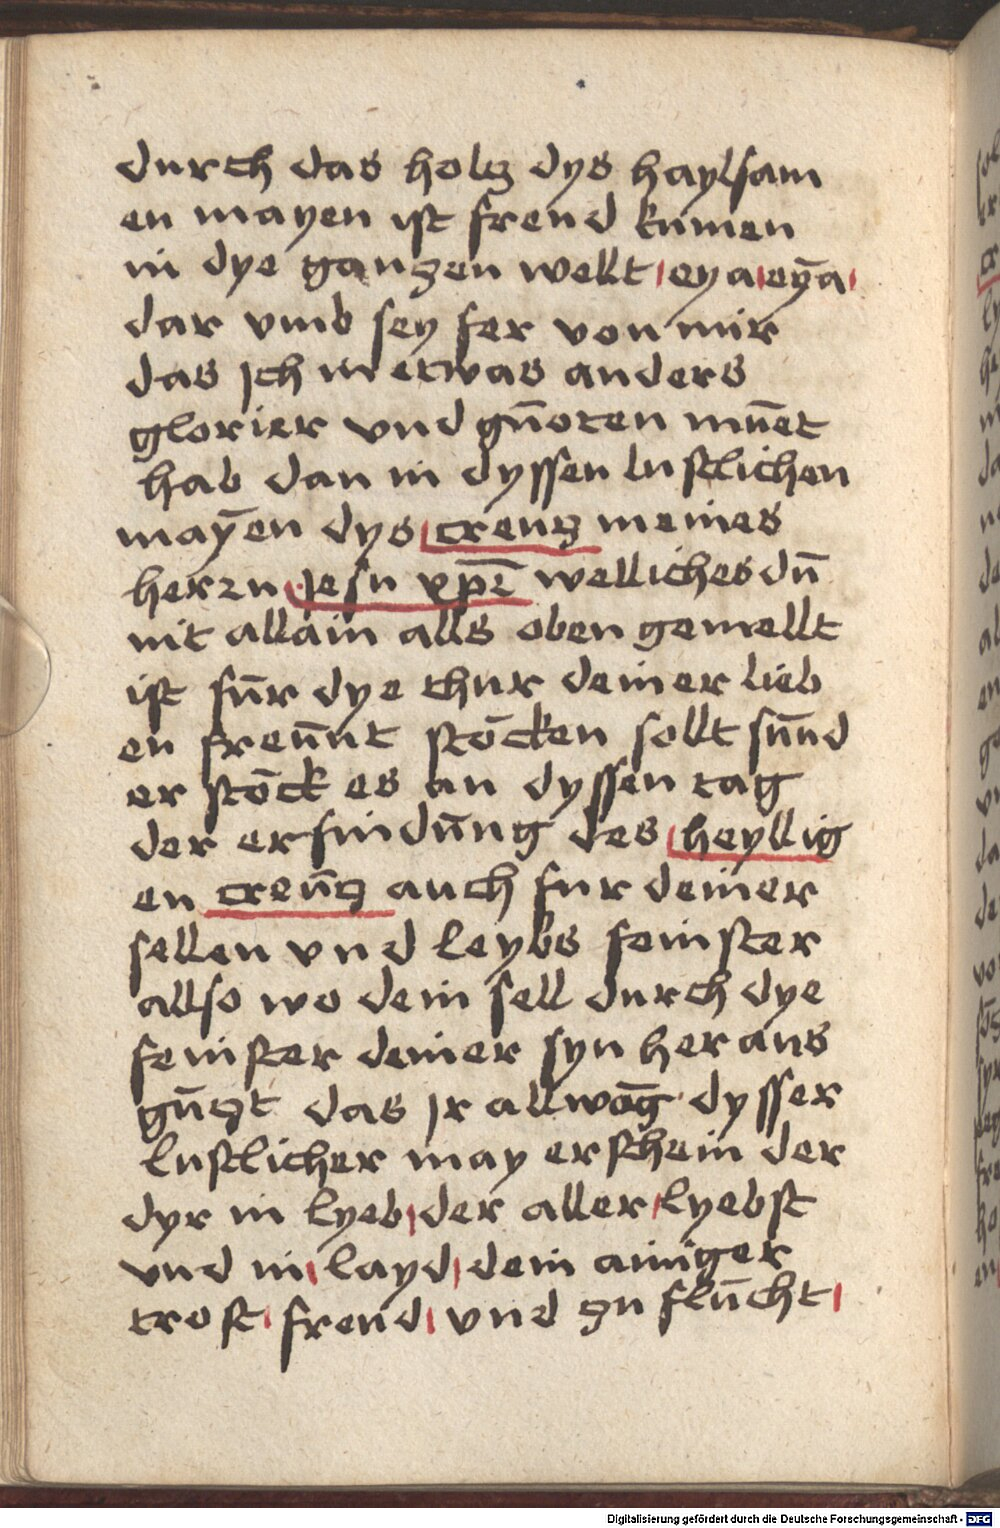 durch das holtz dys haylsam
en mayen ist freud kumen
in dye gantzen wellt eya eÿa
dar vmb sey fer von mir
das ich in etwas anders
glorier vnd gūoten mūet
hab dan in dyssen lustlichen
maÿen dys creutz meines
herzn Jesu xp̄i welliches dū
nit allain alls oben gemellt
ist fūr dye thur deiner lieb
en freūnt stōcken sollt sūnd
er stōck es an dyssen tag
der erfindūng des heyllig
en creūtz auch fur deiner
sellen vnd leybs feinster
allso wo dein sell durch dye
feinster deiner syn heraus
gūtzt das ir allwāg dysser
lustlicher may erschein der
dyr in lyeb der aller lyebst
vnd in layd dein ainiger
trost freud vnd zu flūcht
Digitalisierung gefördert durch die Deutsche Forschungsgemeinschaft - DFG